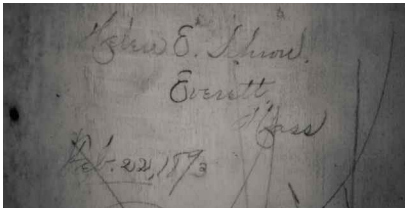 Helen E. Schrow.
Everett,
Mass
Feb. 22, 1893